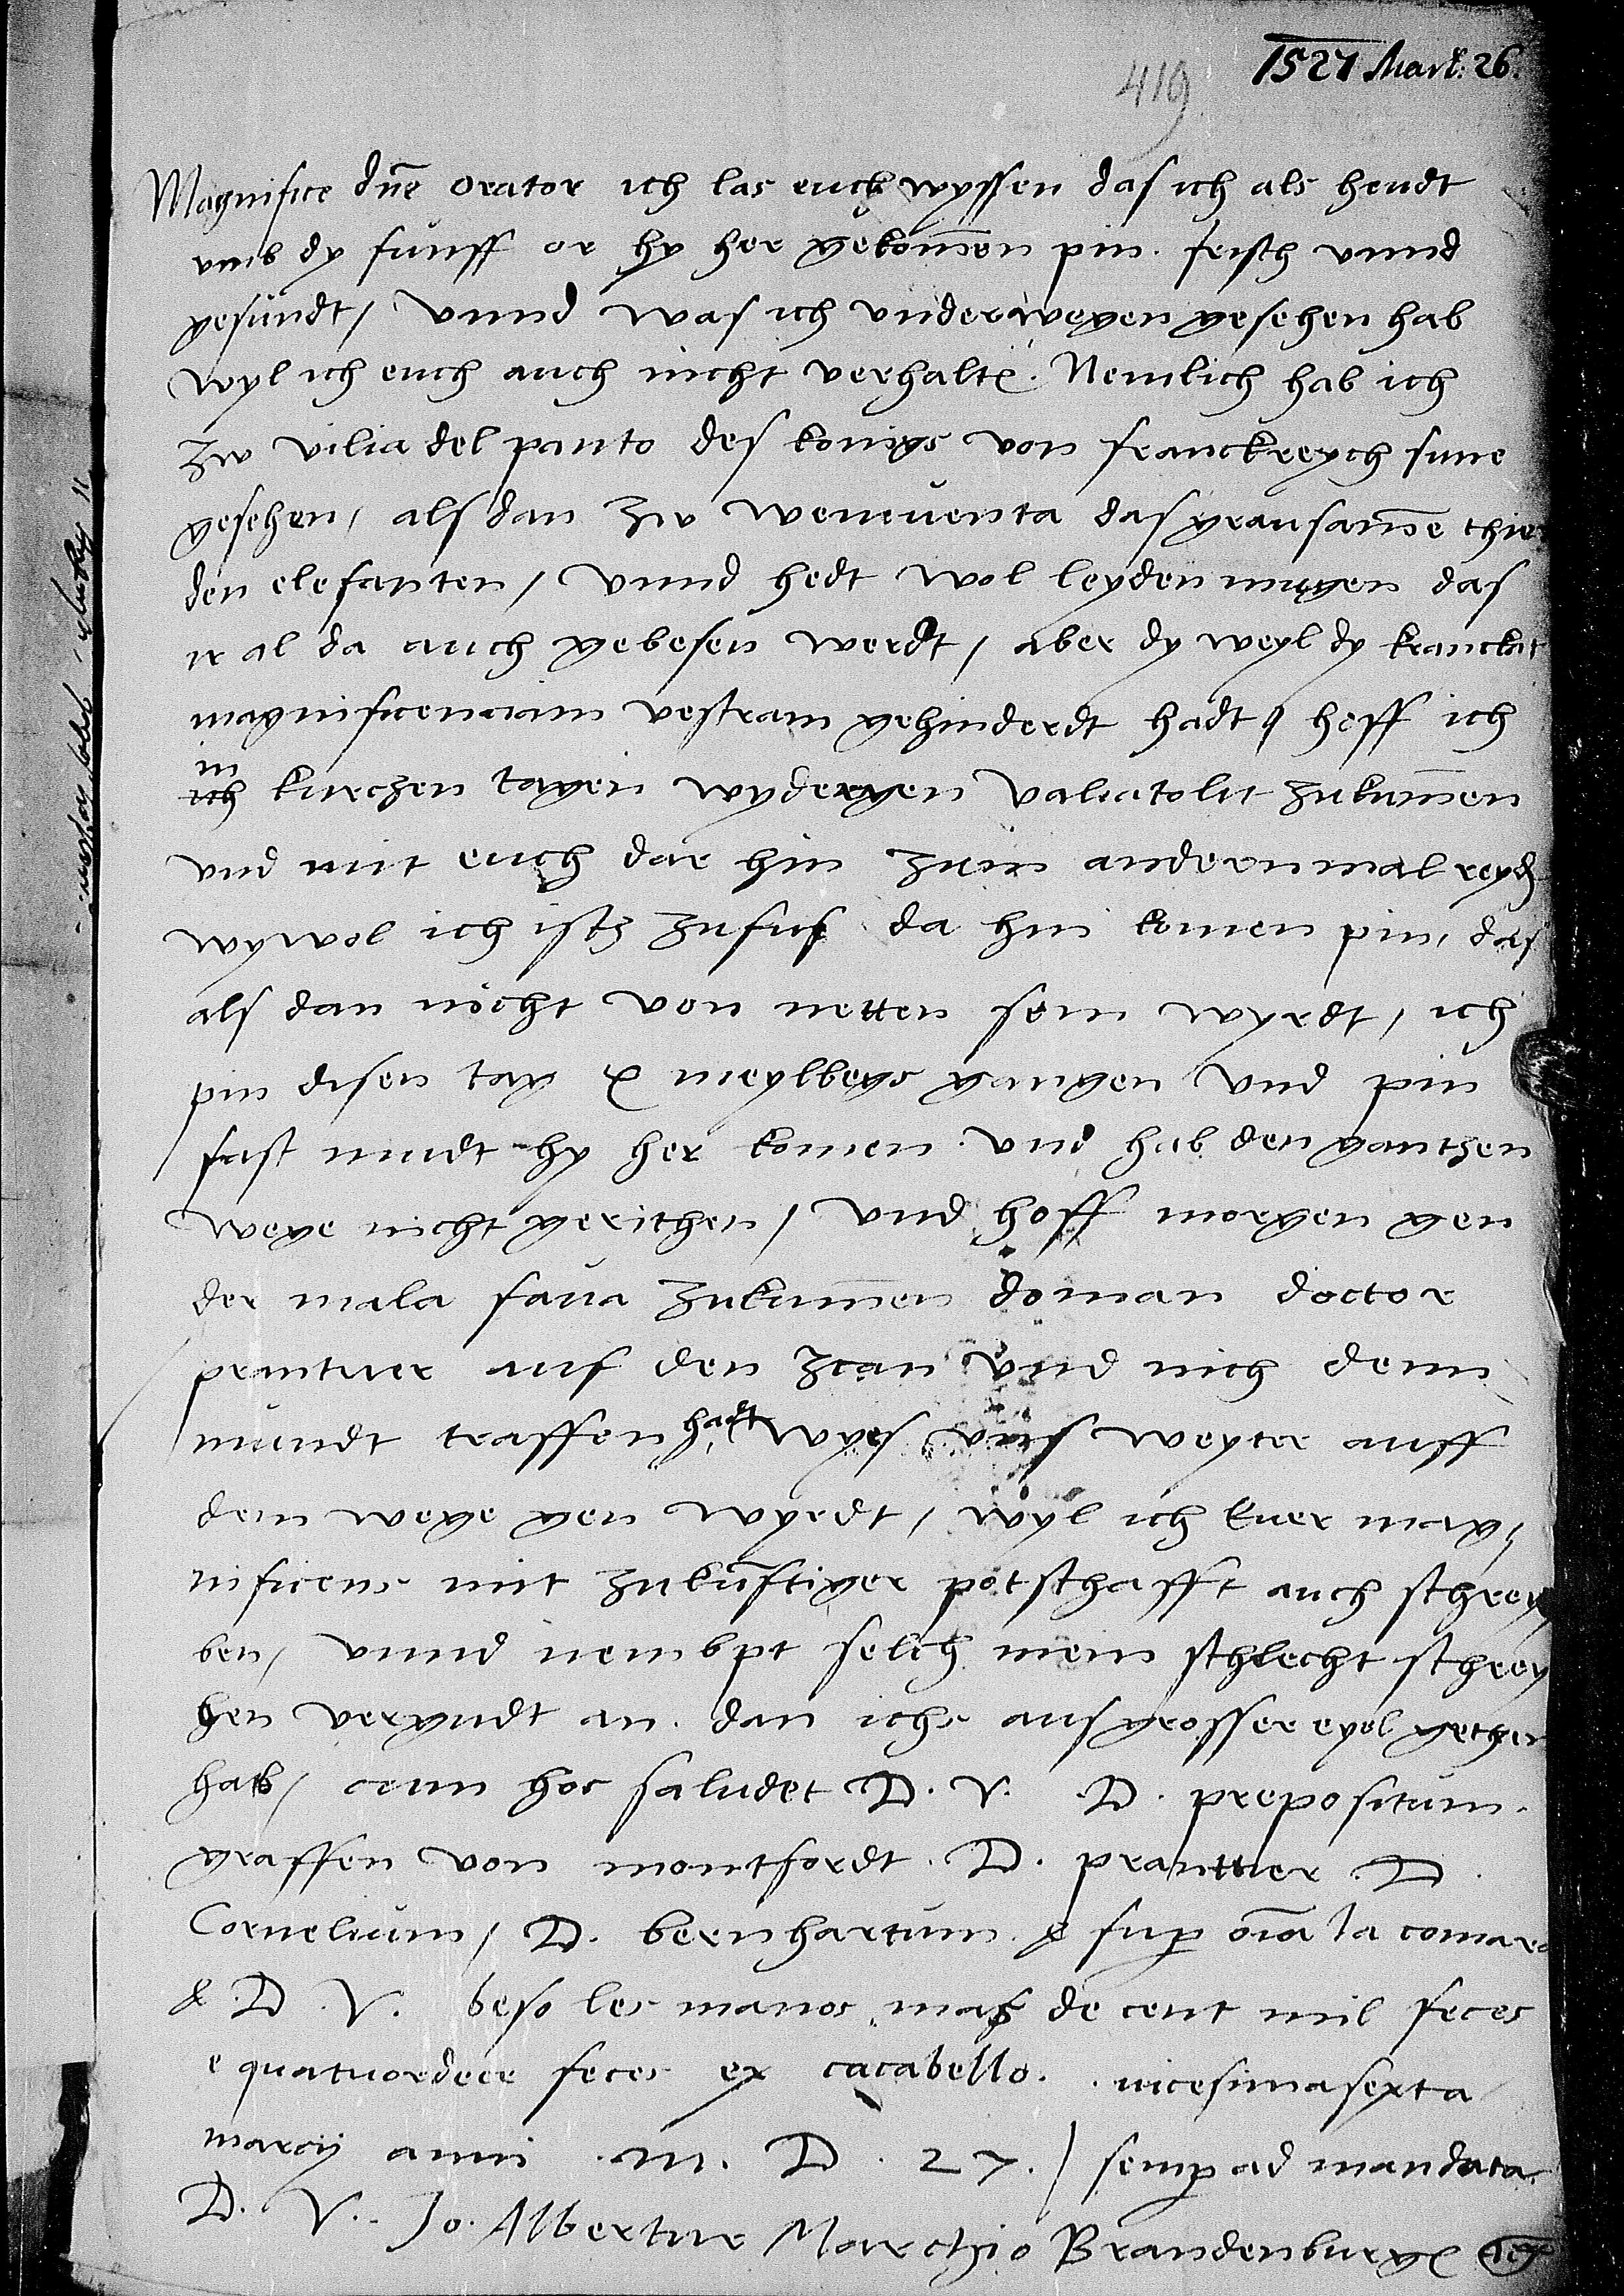 1527 Mart. 26.
419
Magnifice dne orator ich las euch wyssen das ich als heudt
umb dy funff or hy her gekomen pin. frisch unnd
gesundt / unnd was ich underwegen gesehen hab
wyl ich euch auch nicht verhalten. Nemlich hab ich
zw vilia del panto des konigs von franckreych sune
gesehen / als dan zw weneventa das grausame thier
den elefanten / unnd hedt wol leyden mugen das
ir al da auch gebesen werdt / aber dy weyl dy kranckat
magnificenciam vestram gehinderdt hadt / hoff ich
in
ich kurczen tagen wyder gen valiatolit zukumen
und mit euch dar hin zum andern mal reyden
wywol ich istz zufus da hin komen pin / das
als dan nicht von netten sein wyrdt / ich
pin disen tag x meylbegs gangen und pin
fast mudt hy her komen. und hab den gantzen
wege nicht gerithen / und hoff morgen gen
der mala fava zukumen do man doctor
prantner auf den zcan und nich denn
mundt traffen hadt wyes uns weyter auff
dem wege gen wyrdt / wyl ich euer mag
nificens mit zukunftiger potschafft auch schrey
ben / unnd nembpt selch mein schlecht schrey
ben vergudt an. dan ichs aus grosser eyel gethen
hab / cum hoc saludet D. V. D. prepositum.
graffen von montfordt. D. prantner D.
Cornelium / D. bernhartum. & sup oia la comara
& D. V. beso les manos mas de cent mil feces
e quatuordece feces ex cacabello. vicesima sexta
marcii anni .M. D. 27. / semp ad mandata
D. V. Jo. Albertus Marchio Brandenburgen